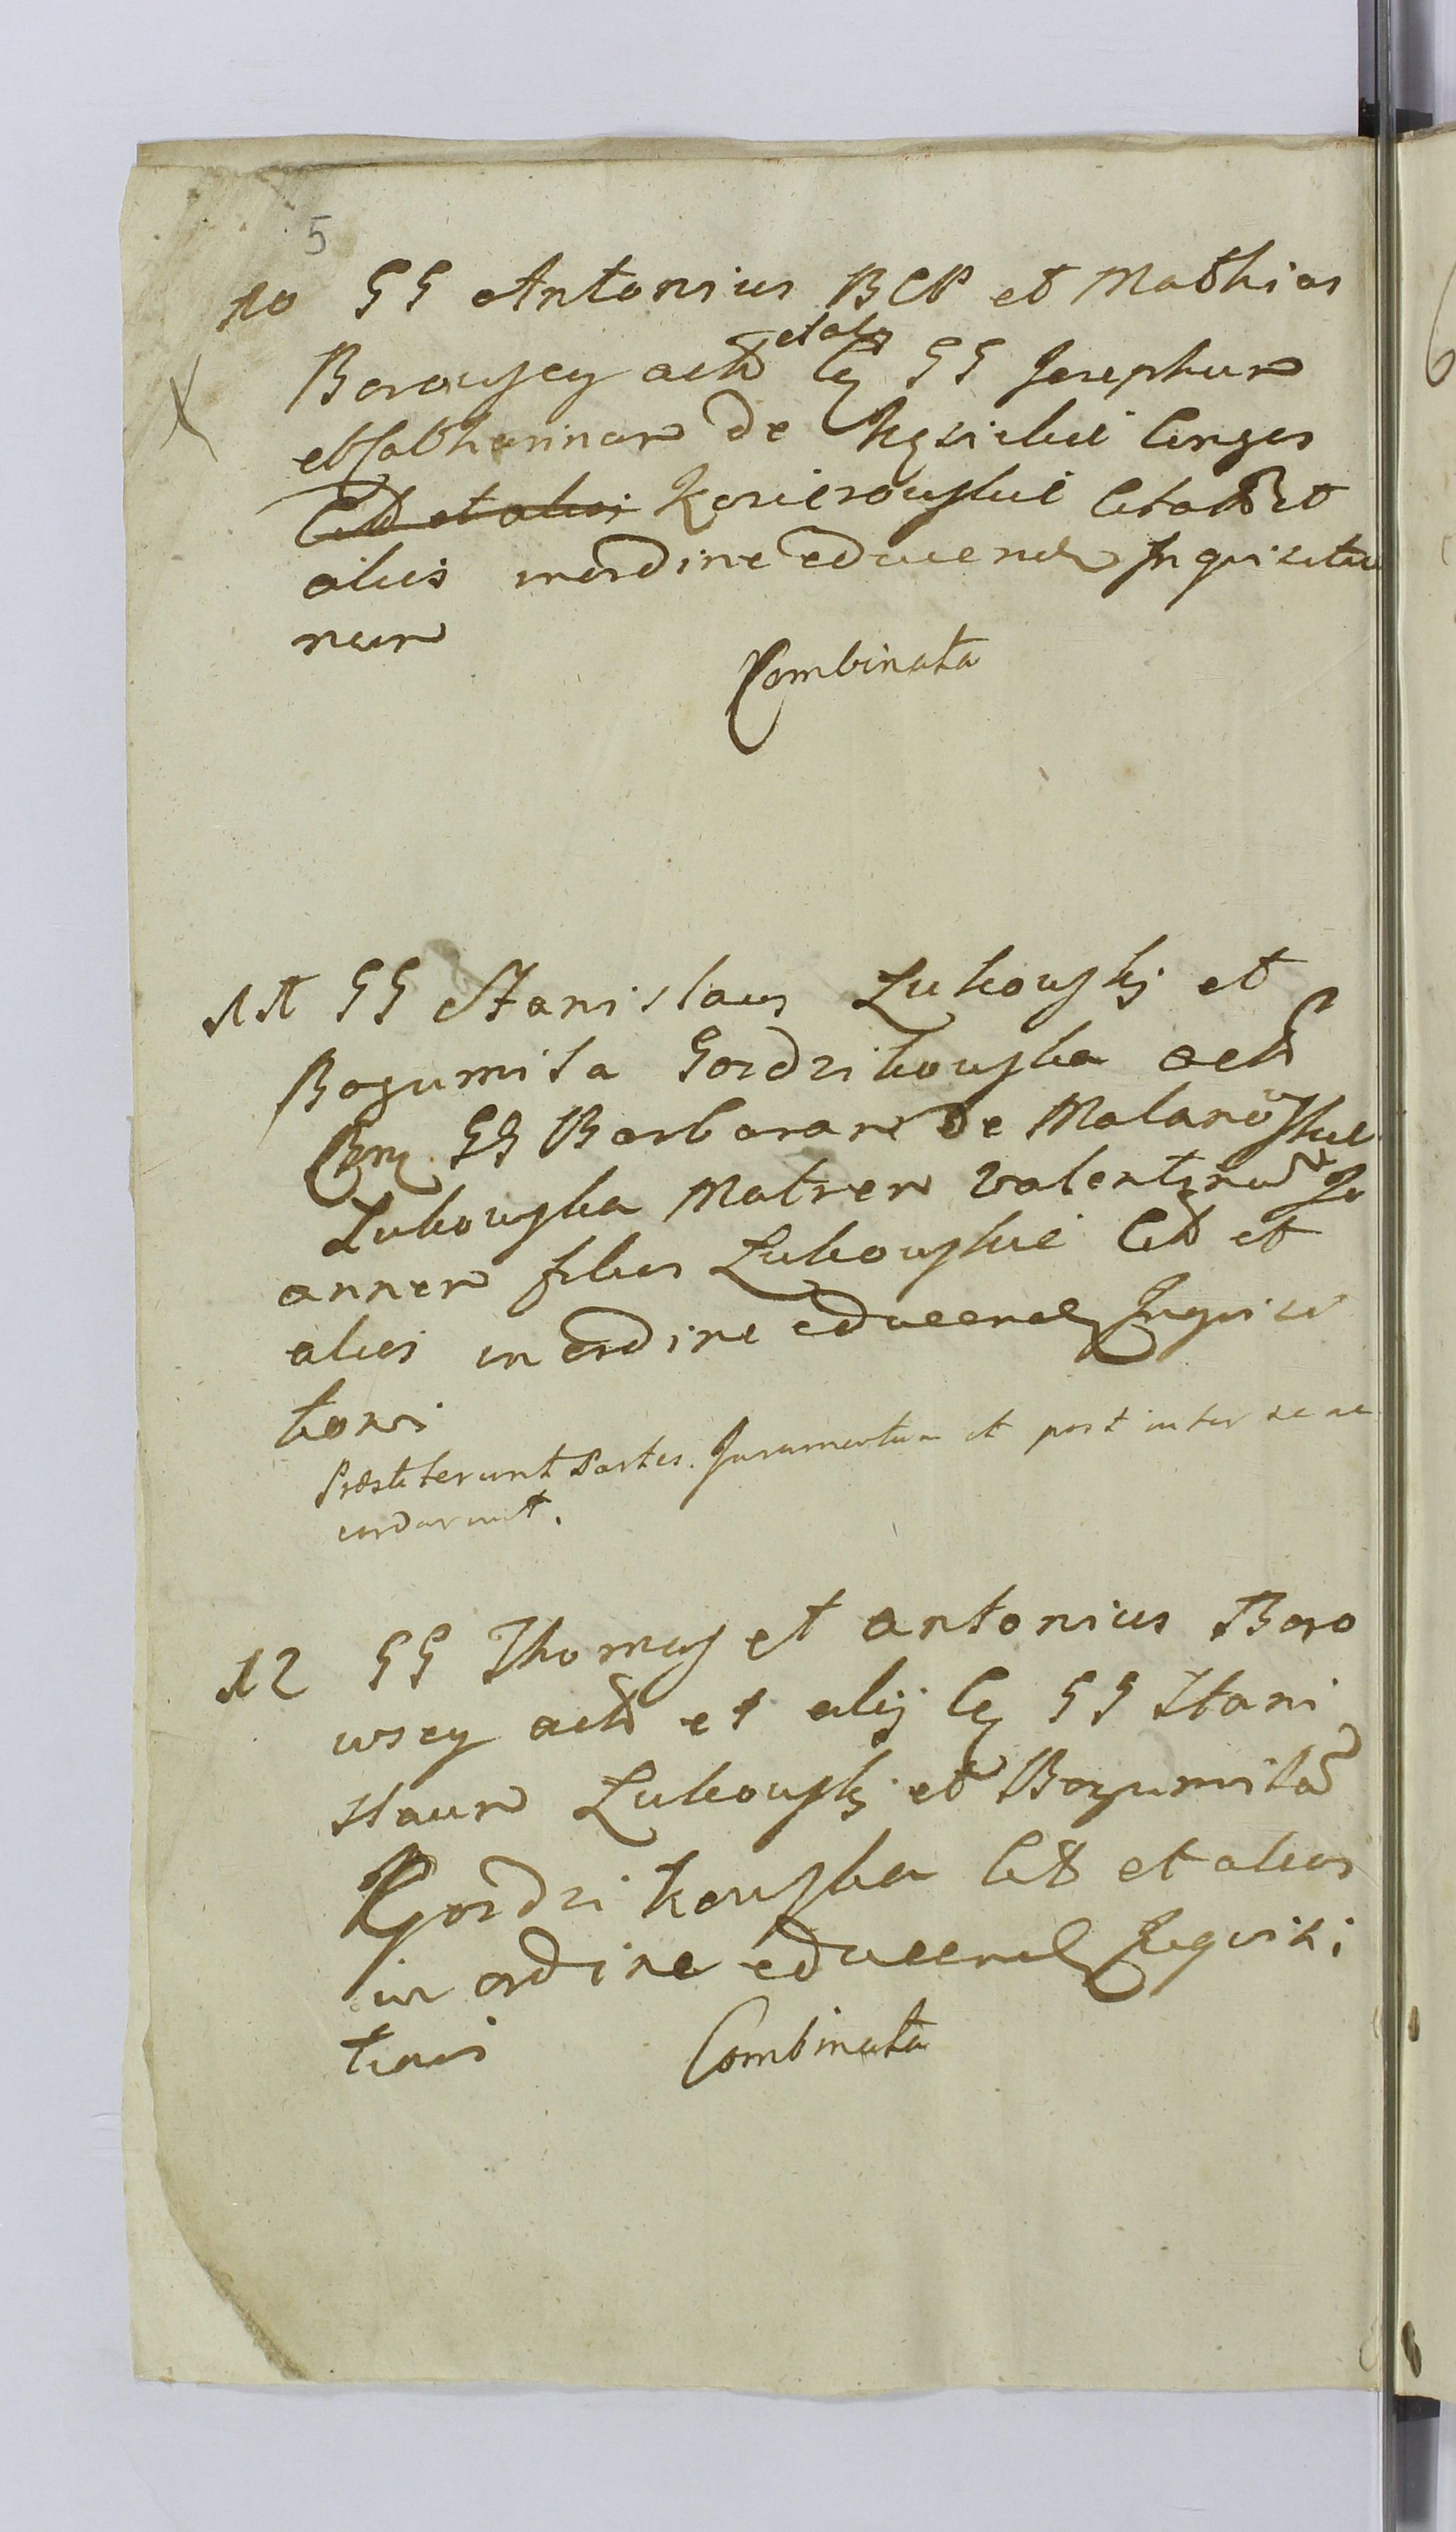 5
10 GG Antonius BCP et Mathias
Borowscy act et alÿ Cq GG Josephum
et Catharinam de conges
Cit et alios Kozierowskie Citat et
alios in ordine educend Inquisitio
num
Combinata
11 GG Stanislaus Lukowskj et
Bogumiła Gordzikowska act
GG Barbaram de Malanowskie
Lukowska Matrem Valentinū Jo
annem filios Lukowskie Cit et
alios in ordine educend Inquisi
tioni
Præstiterunt Partes Juramentum et post inter se ac
cordarunt.
12 GG Thomas et Antonius Boro
wscy act et alij Cq GG Stani
slaum Lukowskj et Bogumiłā
Gordzikowska Cit et alios
in ordine educend Inquisi
tioni
Combinata